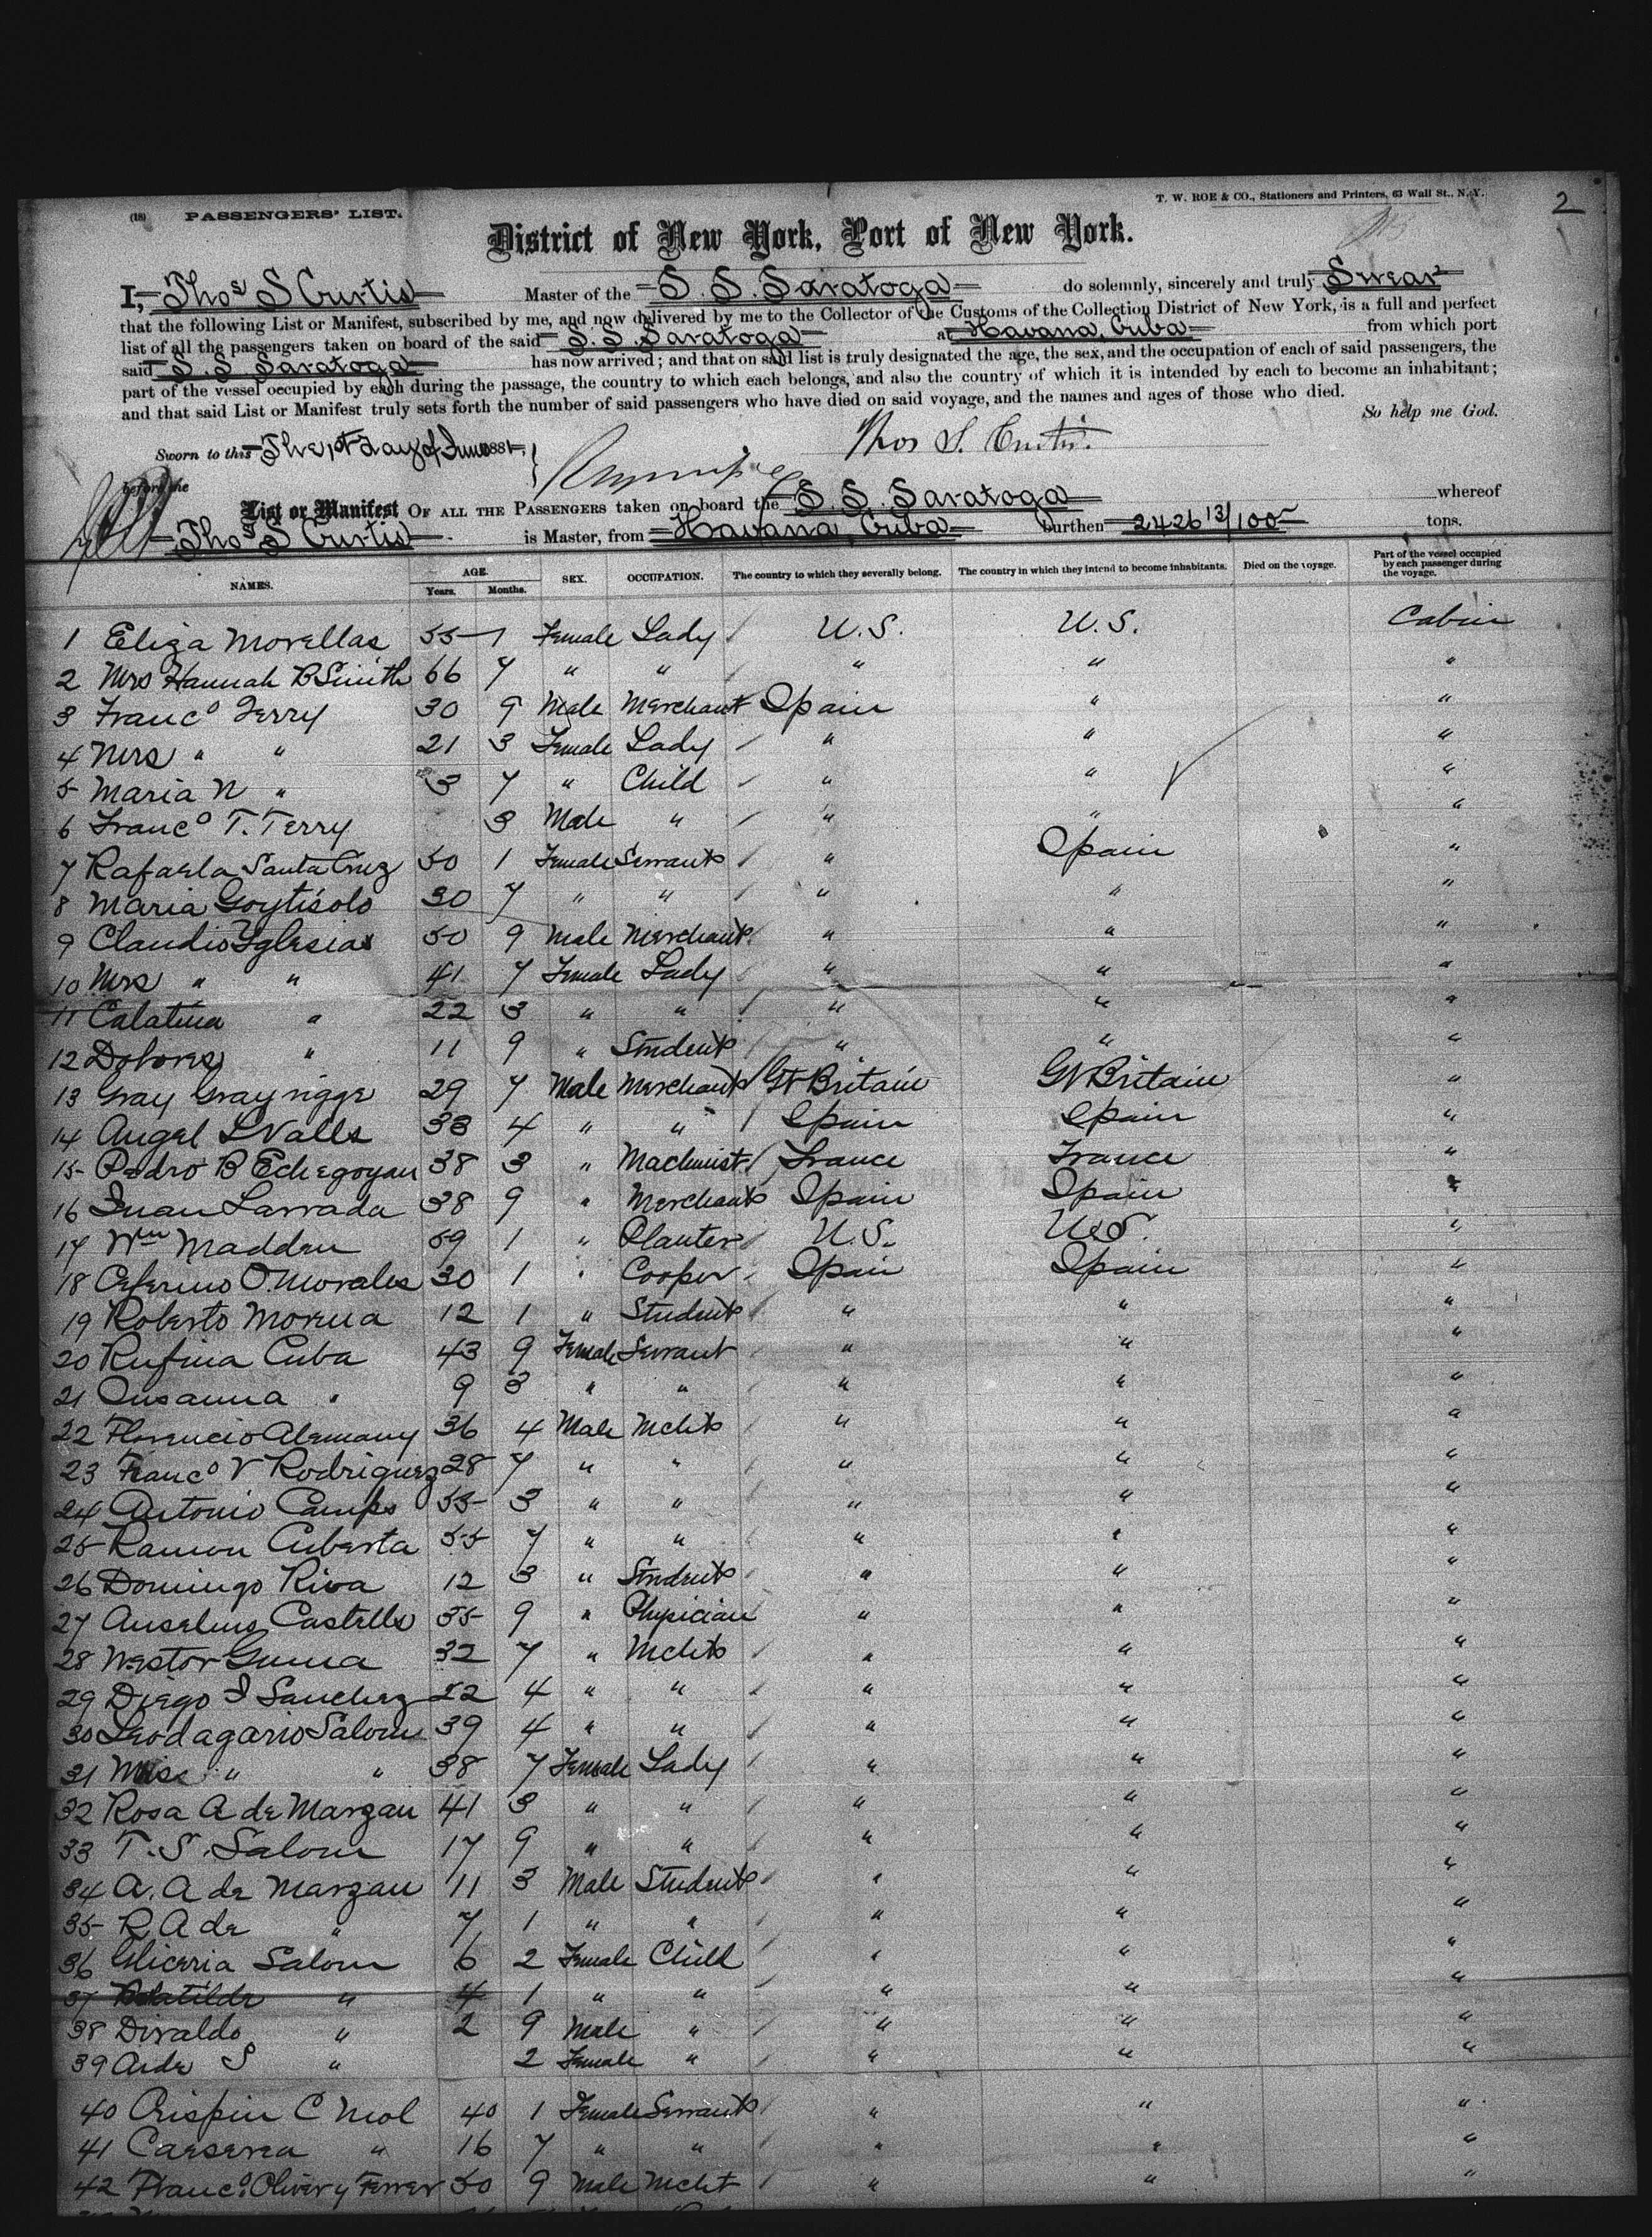 (18) PASSENGERS' LIST.
T. W. ROE & CO., Stationers and Printers, 63 Wall St., N.Y.
2
District of New York, Port of New York.
I, Thos S Curtis Master of the S. S. Saratoga do solemnly, sincerely and truly Swear
that the following List or Manifest, subscribed by me, and now delivered by me to the Collector of the Customs of the Collection District of New York, is a full and perfect
list of all the passengers taken on board of the said S. S. Saratoga at Havana, Cuba from which port
said S. S Saratoga has now arrived; and that on said list is truly designated the age, the sex, and the occupation of each of said passengers, the
part of the vessel occupied by each during the passage, the country to which each belongs, and also the country of which it is intended by each to become an inhabitant;
and that said List or Manifest truly sets forth the number of said passengers who have died on said voyage, and the names and ages of those who died.
So help me God.
Sworn to this The 1st day of June 1881
Thos S. Curtis.
before me
List or Manifest OF ALL THE PASSENGERS taken on board the S. S. Saratoga whereof
Thos S Curtis is Master, from Havana, Cuba burthen 2426 13/100 tons.
NAMES. AGE. Years. Months. SEX. OCCUPATION. The country to which they severally belong. The country in which they intend to become inhabitants. Died on the voyage. Part of the vessel occupied by each passenger during the voyage.
1 Eliza Morellas 55 7 Female Lady U.S. U.S. Cabin
2 Mrs Hannah B Smith 66 7 " " " " "
3 Franco Terry 30 9 Male Merchant Spain " "
4 Mrs " " 21 3 Female Lady " " "
5 Maria N " 3 7 " Child " " "
6 Franco T. Terry 3 Male " " " "
7 Rafaela Santa Cruz 50 1 Female Servant " Spain "
8 Maria Goytisolo 30 7 " " " " "
9 Claudio Yglesias 50 9 Male Merchant " " "
10 Mrs " " 41 7 Female Lady " " "
11 Calatina " 22 3 " " " " "
12 Dolores " 11 9 " Student " " "
13 Gray Grayrigge 29 7 Male Merchant Gt Britain Gt Britain "
14 Angel L Valls 33 4 " " Spain Spain "
15 Pedro B Echegoyan 38 3 " Machinist France France "
16 Juan Larrada 38 9 " Merchant Spain Spain "
17 Wm Madden 59 1 " Planter U.S. U.S. "
18 Ceferino O. Morales 30 1 " Cooper Spain Spain "
19 Roberto Morena 12 1 " Student " " "
20 Rufina Cuba 43 9 Female Servant " " "
21 Susanna " 9 3 " " " " "
22 Florencio Alemany 36 4 Male Mcht " " "
23 Franco V Rodriguez 28 7 " " " " "
24 Antonio Camps 55 3 " " " " "
25 Ramon Cuberta 55 7 " " " " "
26 Domingo Riva 12 3 " Student " " "
27 Anselmo Castells 35 9 " Physician " " "
28 Nestor Guma 32 7 " Mcht " " "
29 Diego J Sanchez 22 4 " " " " "
30 Leodagario Salom 39 4 " " " " "
31 Miss " " 38 7 Female Lady " " "
32 Rosa A de Marzan 41 3 " " " " "
33 T. S. Salom 17 9 " " " " "
34 A. A de Marzan 11 3 Male Student " " "
35 R A de " 7 1 " " " " "
36 Gliceria Salom 6 2 Female Child " " "
37 Matilde " 4 1 " " " " "
38 Divaldo " 2 9 Male " " " "
39 Aida S " 2 Female " " " "
40 Crispin C Mol 40 1 Female Servant " " "
41 Caeserea " 16 7 " " " " "
42 Franco. Oliver y Ferrer 50 9 Male Mcht " " "